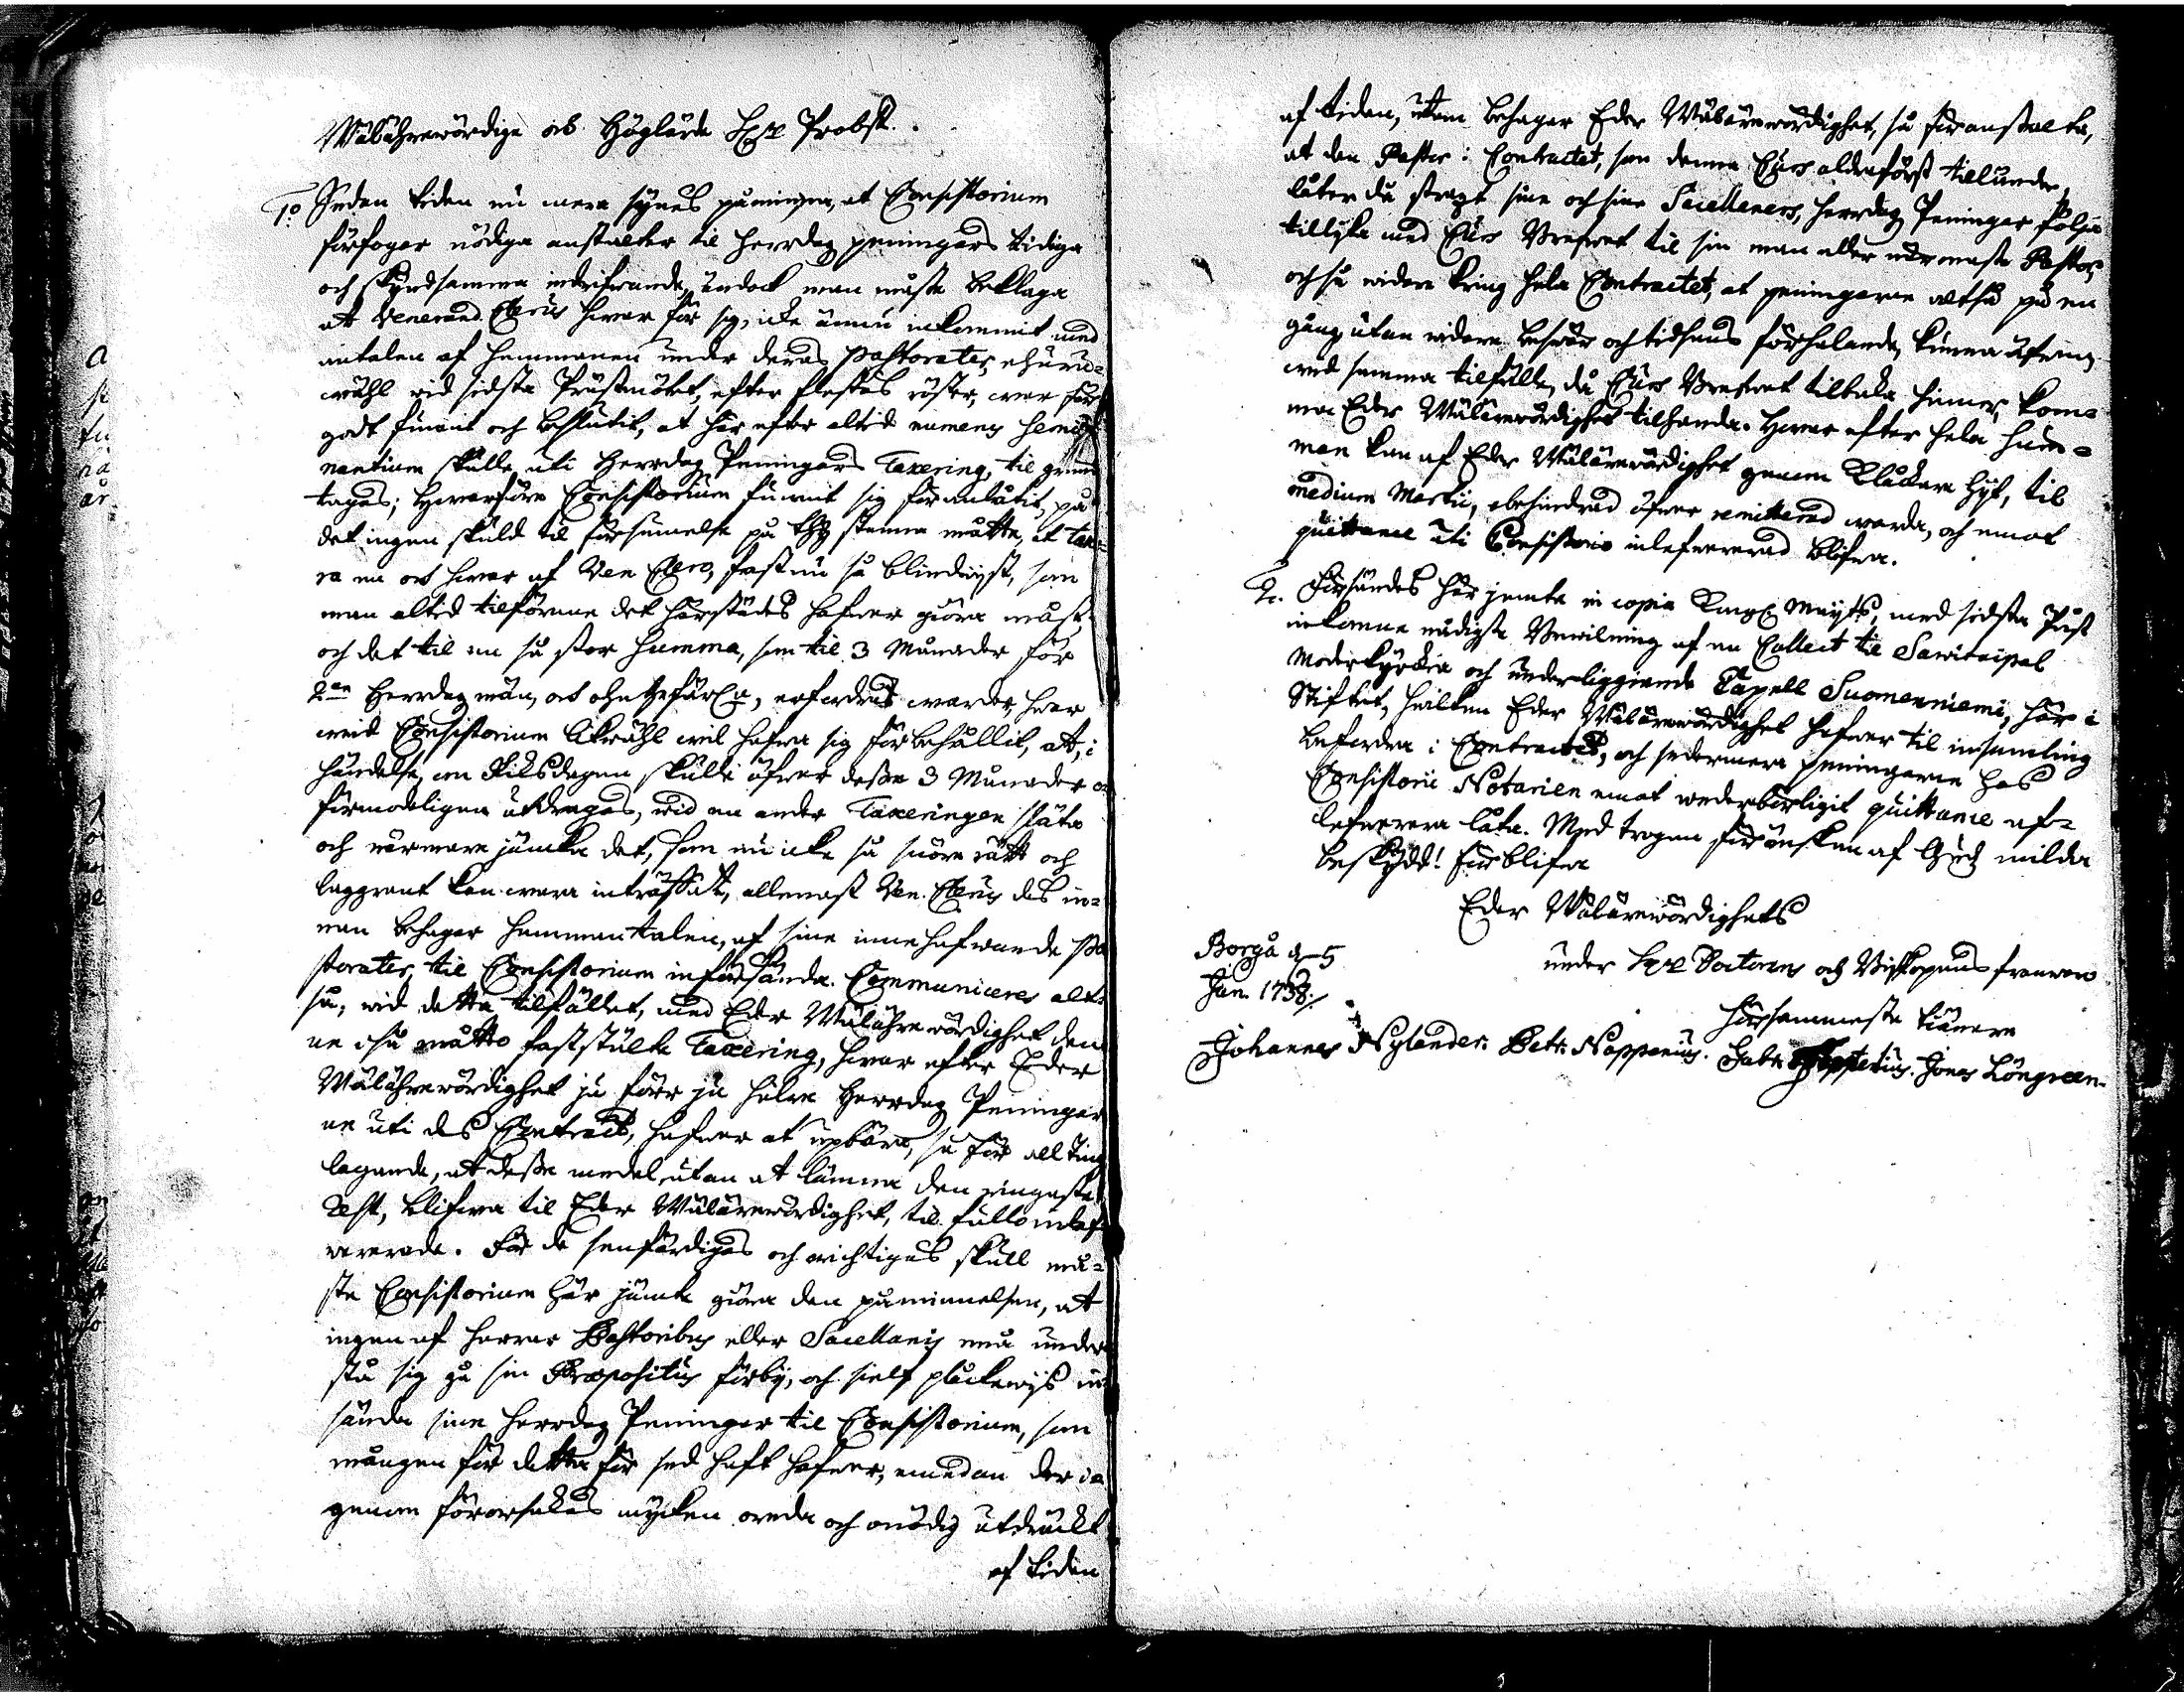 Wälährewördige och Höglärde Herr Probst.
1:o Sedan tiden nu mera synes påminna, at Consistorium
förfogar nödiga anstalter til Herredag penningars tidiga
och skyndsamma indrifwande, ändock man måste beklaga
att Venerand. Clerus hwar för sig, icke ännu inkommit med
antalen af hemmanen under deras Pastorater, ehuru-
wähl wid sidsta Prästmötet, efter flestas röster, war för
godt funnit och beslutit, at här efter altid numerus hem-
mantium skulle, uti Herredag Penningars Taxering, til grund
tagas; Hwarföre Consistorium funnit sig föranlåtit, på
det ingen skuld til försummelse på thess stanna måtte, at taxe-
ra en och hwar af Ven Clero, fast nu så blindwijst, som
man altid tilförenne det härstädes hafwer giöra måst,
och det til en så stor summa, som til 3 Månader för
2:ne Herredagsmän, och ohngefärl:n, erfordras warder, hwar
wid Consistorium likwähl wil hafwa sig förbehållit, att, i
händelse, om Riksdagen skulle öfwer desse 3 Månader
förmodeligen utdragas, wid en andr Taxeringen släta
och närmare jämka det, som nu icke så snöre rätt och
laggrant kan wara inträffat, allenast Ven. Clerus des in-
nan behagar hemmantalen, af sine innehafwande Pa-
storater, til Consistorium införsända. Communiceres alt-
så, wid detta tilfället, med Eder Wälährewördighet den-
ne i så måtto fastställte Taxering, hwar efter Eder
Wälährewördighet ju förr ju heldre Herredag Penningar-
ne uti des Contract, hafwer at upbära, så för all ting
lagande, at desse medel, utan at lämna den ringaste
Rest, blifwa til Eder Wälärewördighet, til fullo inlef-
wererade. För de senfärdigas och oricktigas skull må-
ste Consistorium här jämte giöra den påminnelsen, at
ingen af Herrar Pastoribus eller Sacellanis må under-
stå sig gå sin Præpositus förbij, och sielf pluckewijs in-
sända sine Herredag Penningar til Consistorium, som
mången för detta för sed haft hafwer, emedan der i-
genom förorsakas mycken oreda och onödig utdräckt
af tiden
af tiden, utan behagar Eder Wälärewördighet, så föranstalta,
at den Pastor i Contractet, som denna Curs aldraförst tilländer,
låter då strax sine och sine Sacellaners, Herredag Penningar följa
tillijka med Curs Brefwet til sin man eller närmaste Pastor,
och så widare kring hela Contractet, at penningarne altså på en
gång utan widare beswär och tidsens förhalande, kunna
wid samma tilfälle, då Curs Brefwet tilbaka hinner, kom-
ma Eder Wälärewördighet tilhanda. Hwar efter hela sum-
man kan af Eder Wälärewördighet genom Klåckare hijt, til
medium Martii, obehindrad öfwer remitterad warda, och emot
quittance uti Consistorio inlefwererad blifwa.
2. Försändes här jemte in copia Kongl Maij:ts, med sidsta Påst
inkomne nådigste Bewilning af en Collect til Sawitaipal
Moderkyrckia och underliggiande Capell Suomenniemi, här i
Stiftet, hwilken Eder Wälärewördighet hafwer til insamling
befordra i Contractet, och sedermera penningarne hos
Consistorii Notarien emot wederbörligit quittance af-
lefwerera låta. Med trogen förönskan af Gudz milda
beskydd! förblifwa
Eder Wälärewördighets
Borgå d 5
Jan. 1738./.
under Herr Doctorens och Biskopens franwaro
hörsammeste tiänare
Johannes Nylander. Petr. Noppenius. Gabr. Jonas Löngreen.